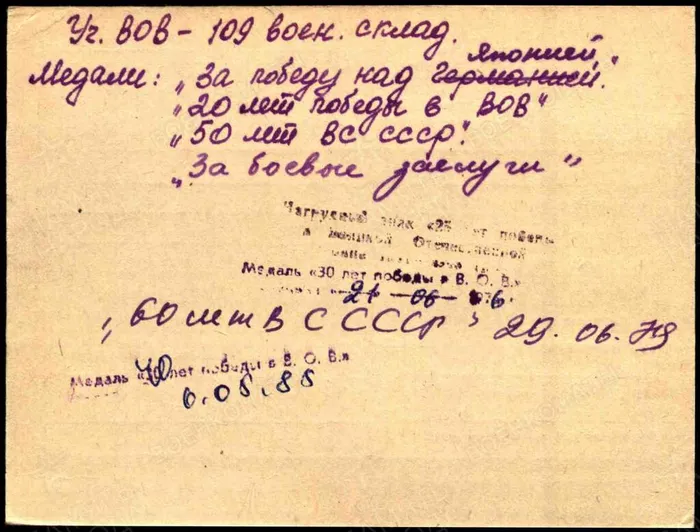 Уч. ВОВ – 109 воен. склад.
Японией
Медали: „За победу над Германией."
„20 лет победы в ВОВ"
„50 лет ВС СССР".
„За боевые заслуги"
Нагрудный знак «25 лет победы
в Великой Отечественной
войне
Медаль «30 лет победы в В. О. В.»
„60 лет ВС СССР" 29.06.79
Медаль «40 лет победы в В. О. В.»
6.05.85